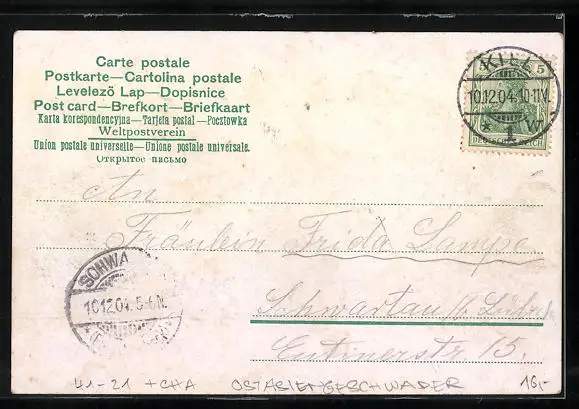 Carte postale
Postkarte—Cartolina postale
Levelező Lap—Dopisnice
Post card—Brefkort—Briefkaart
Karta korespondencyjna—Tarjeta postal—Pocztówka
Weltpostverein
Union postale universelle—Unione postale universale.
Открытое письмо
5 5
KIEL
10.12.04.10-11V.
* 1
DEUTSCHES REICH
An
Fräulein Frida Lampe.
SCHWARTAU
10.12.04.5-6N.
Schwartau b/ Lübeck
Eutinerstr. 15.
41-21 + CHA OSTASIENGESCHWADER 16,-